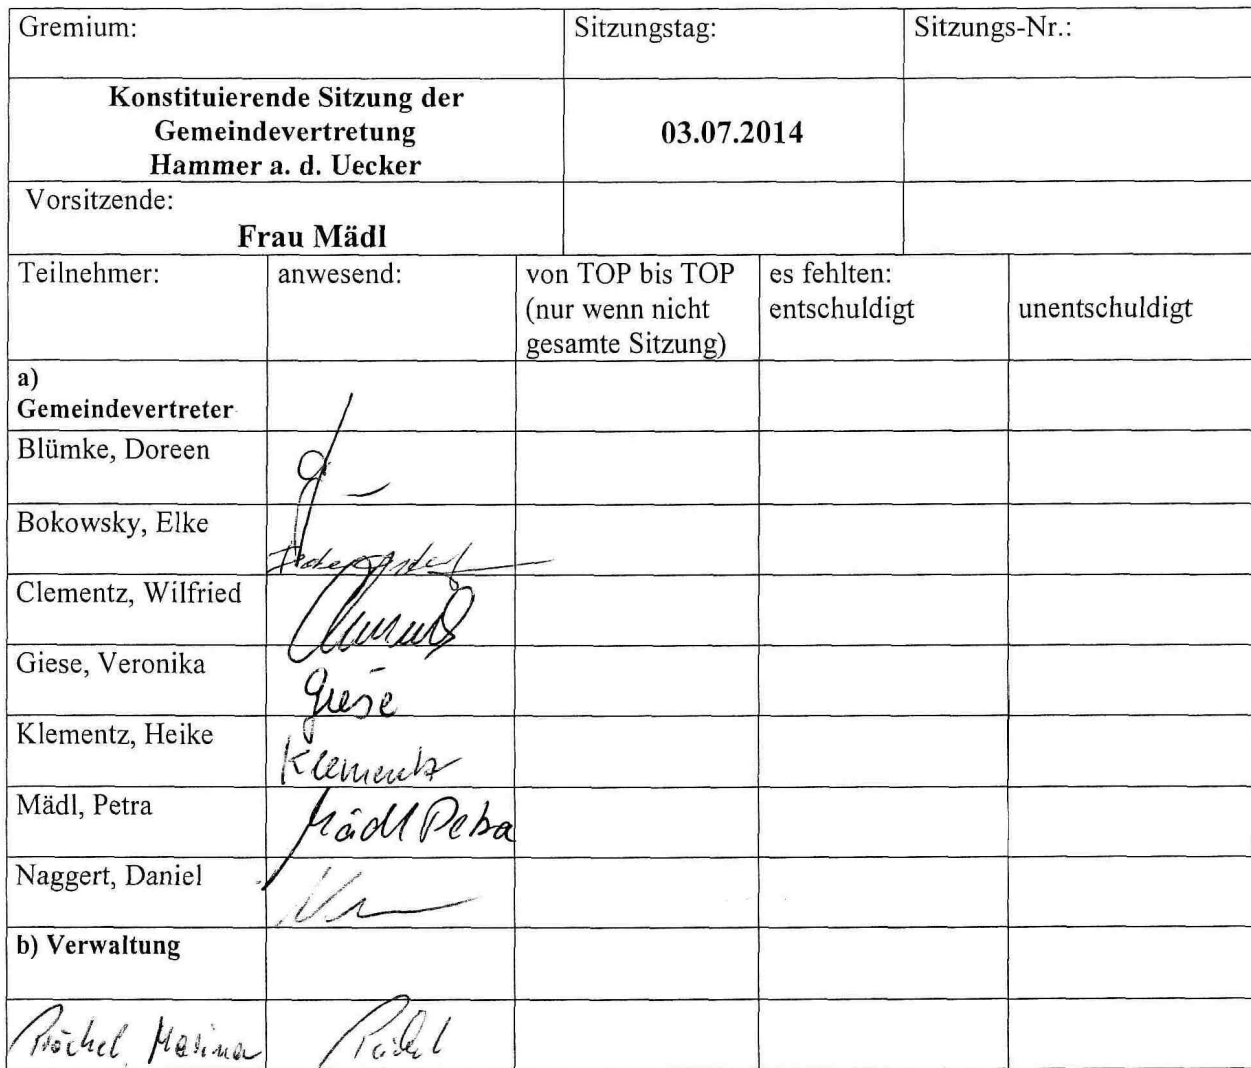 Gremium:
Sitzungstag:
Sitzungs-Nr.:
Konstituierende Sitzung der
Gemeindevertretung
Hammer a. d. Uecker
03.07.2014
Vorsitzende:
Frau Mädl
Teilnehmer:
anwesend:
von TOP bis TOP
(nur wenn nicht
gesamte Sitzung)
es fehlten:
entschuldigt
unentschuldigt
a)
Gemeindevertreter
Blümke, Doreen
Bokowsky, Elke
Clementz, Wilfried
Giese, Veronika
Giese
Klementz, Heike
Klementz
Mädl, Petra
Mädl Petra
Naggert, Daniel
b) Verwaltung
Marina